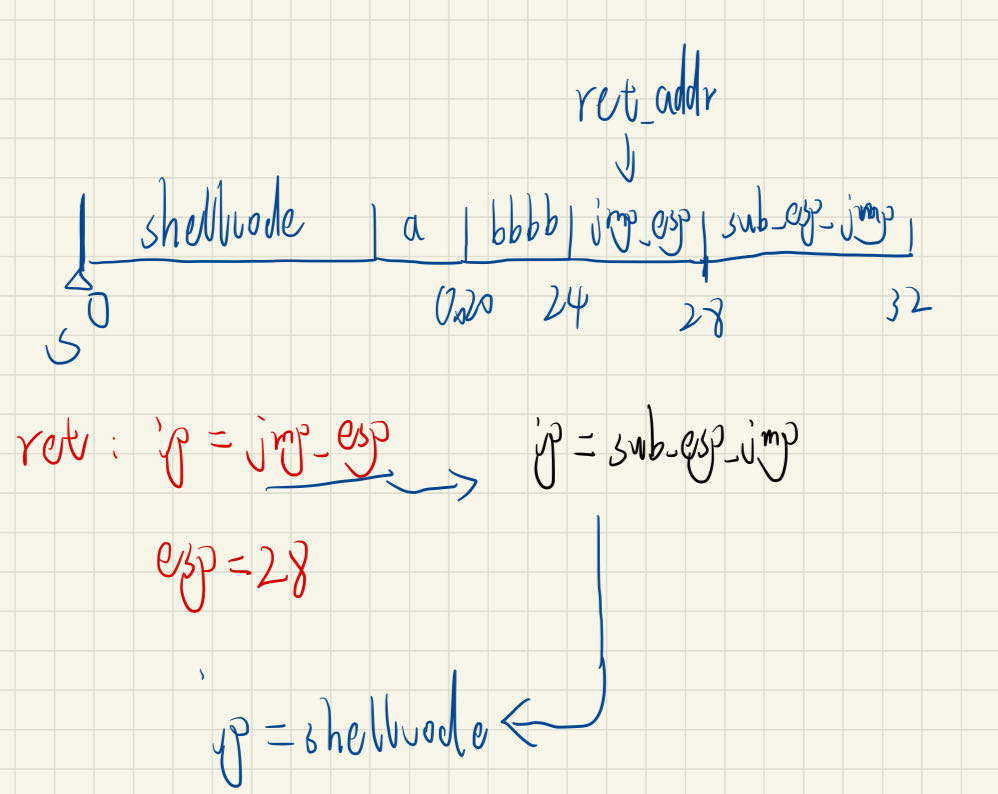 ret_addr
shellcode a bbbb jmp_esp sub_esp_jmp
0 0x20 24 28 32
S
ret: ip = jmp_esp ip = sub_esp_jmp
esp = 28
ip = shellcode